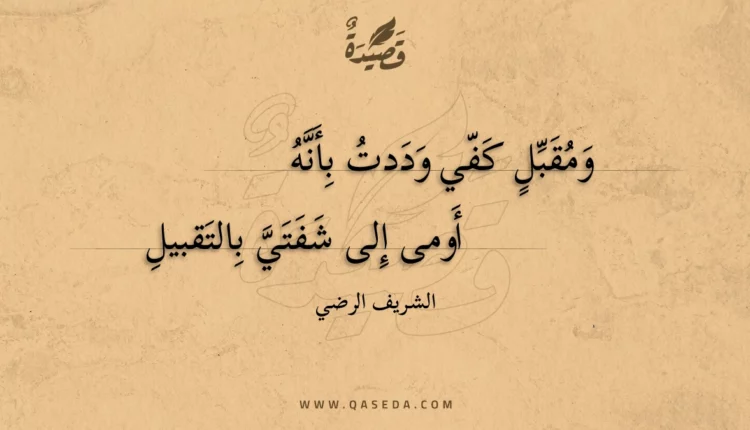 قَصِيدَةٌ
وَمُقَبِّلٍ كَفّي وَدَدتُ بِأَنَّهُ
أَومى إِلى شَفَتَيَّ بِالتَقبيلِ
الشريف الرضي
WWW.QASEDA.COM